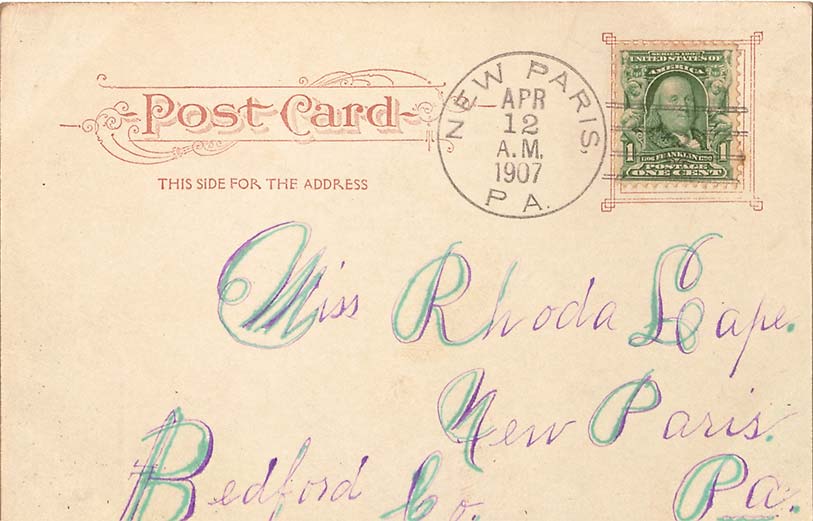 Post Card
THIS SIDE FOR THE ADDRESS
NEW PARIS,
APR
12
A.M.
1907
PA.
SERIES 1902
UNITED STATES OF
AMERICA
1 FRANKLIN 1
POSTAGE
ONE CENT
Miss Rhoda Cape.
New Paris.
Bedford Co. Pa.